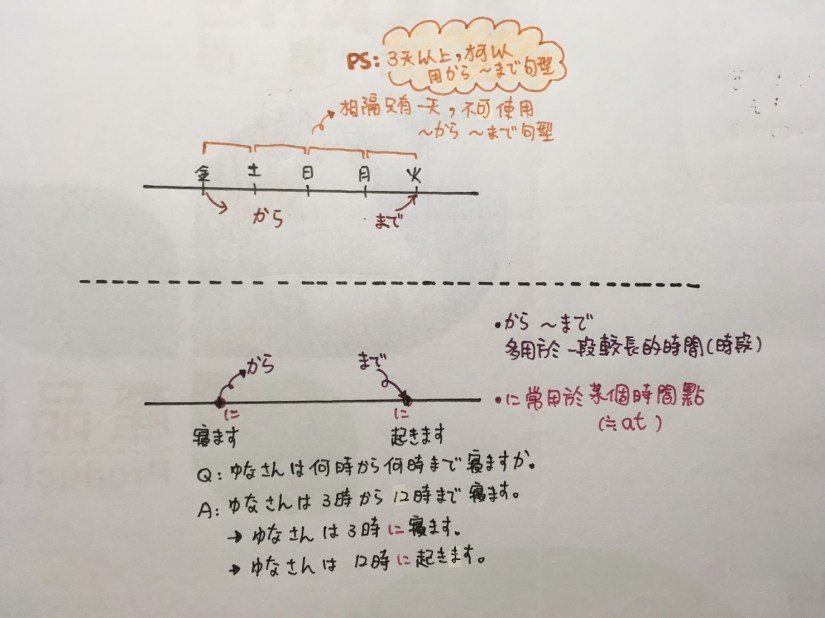 PS: 3天以上,才可以
用から~まで句型
相隔只有一天,不可使用
~から~まで句型
金 土 日 月 火
から まで
•から~まで
多用於一段較長的時間(時段)
から まで
•に常用於某個時間點
(≒at)
に に
寝ます 起きます
Q:ゆなさんは何時から何時まで寝ますか。
A:ゆなさんは3時から12時まで寝ます。
→ゆなさんは3時に寝ます。
→ゆなさんは 12時に起きます。
產品
Product